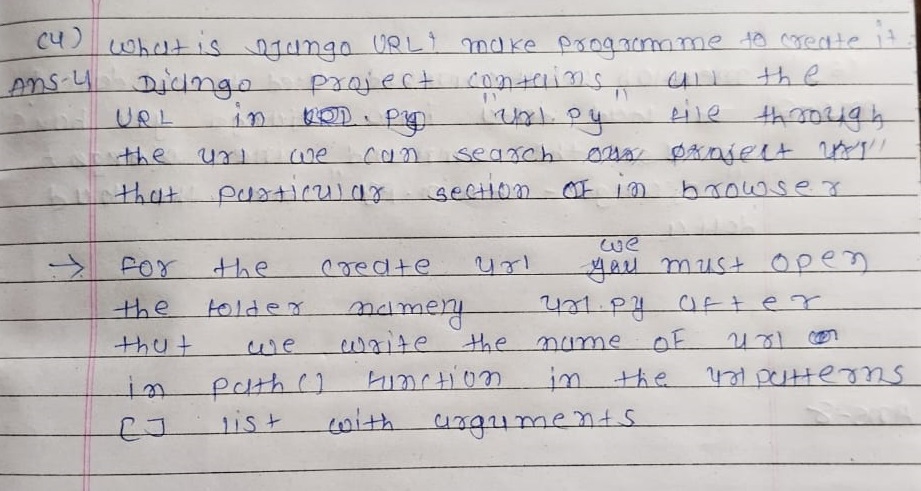 (4) what is Django URL? make programme to create it.
Ans-4 Django project contains all the
URL in "url.py" file through
the url we can search our project url
that particular section of in browser
→ For the create url we must open
the folder namely url.py after
that we write the name of url
in path() function in the urlpatterns
[] list with arguments